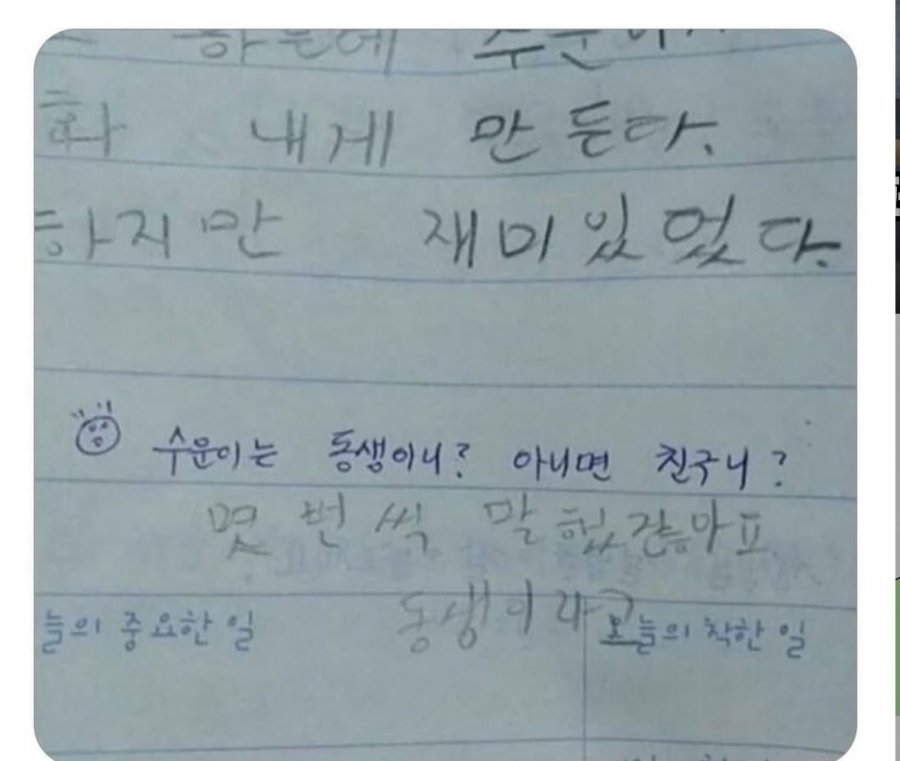 하는데 수운이가
화 내게 만든다.
하지만 재미있었다.
수운이는 동생이니? 아니면 친구니?
몇 번씩 말했잖아요
동생이라고
늘의 중요한 일 오늘의 착한 일